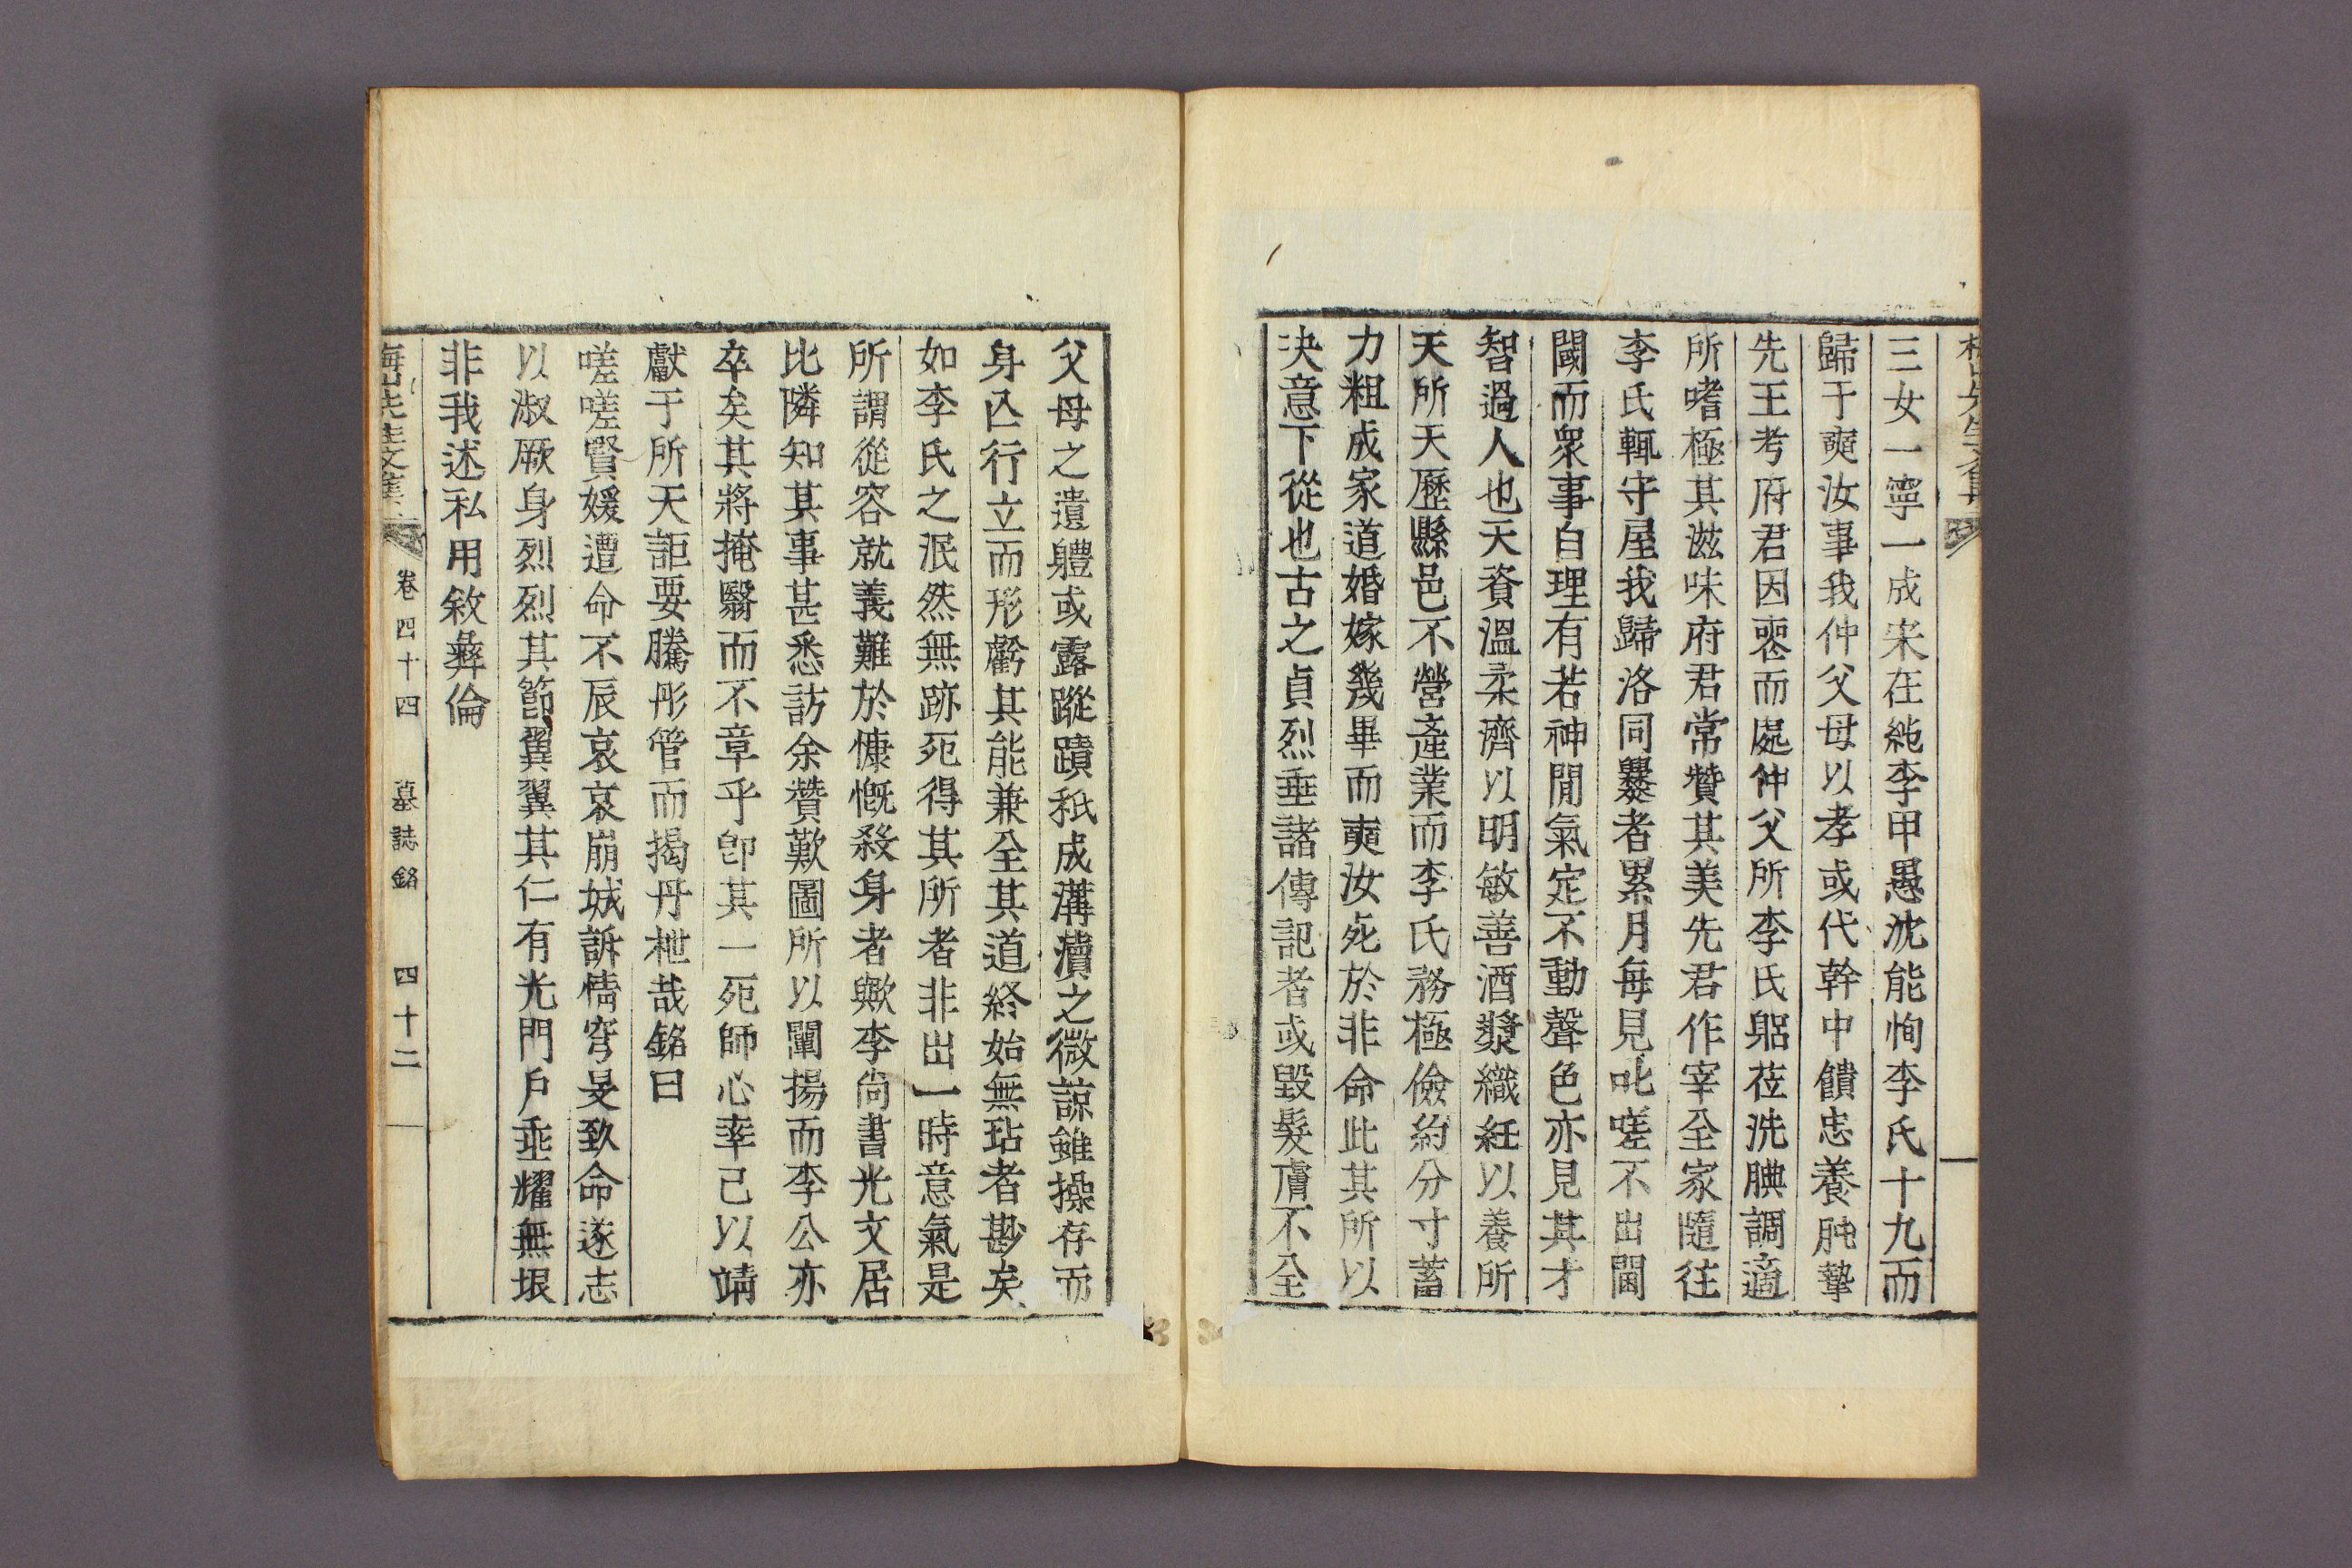 三女一寧一成宋在純李甲愚沈能恂李氏十九而
歸于奭汝事我仲父母以孝或代幹中饋忠養肫摯
先王考府君因喪而處仲父所李氏躬莅洗腆調適
所嗜極其滋味府君常贊其美先君作宰全家隨往
李氏輒守屋我歸洛同爨者累月每見叱嗟不出閫
閾而衆事自理有若神閒氣定不動聲色亦見其才
智過人也天資溫柔濟以明敏善酒漿織紝以養所
天所天歷縣邑不營產業而李氏務極儉約分寸蓄
力粗成家道婚嫁幾畢而奭汝死於非命此其所以
决意下從也古之貞烈垂諸傳記者或毀髮膚不全
父母之遺軆或露蹤蹟秖成溝瀆之微諒雖操存而
身亾行立而形虧其能兼全其道終始無玷者尠矣
如李氏之泯然無跡死得其所者非出一時意氣是
所謂從容就義難於慷慨殺身者歟李尙書光文居
比隣知其事甚悉訪余贊歎圖所以闡揚而李公亦
卒矣其將掩翳而不章乎卽其一死師心幸己以靖
獻于所天詎要騰彤管而揭丹枻哉銘曰
嗟嗟賢媛遭命不辰哀哀崩城訴情穹旻致命遂志
以淑厥身烈烈其節翼翼其仁有光門戶垂耀無垠
非我述私用敘彝倫
梅山先生文集 卷四十四 墓誌銘 四十二